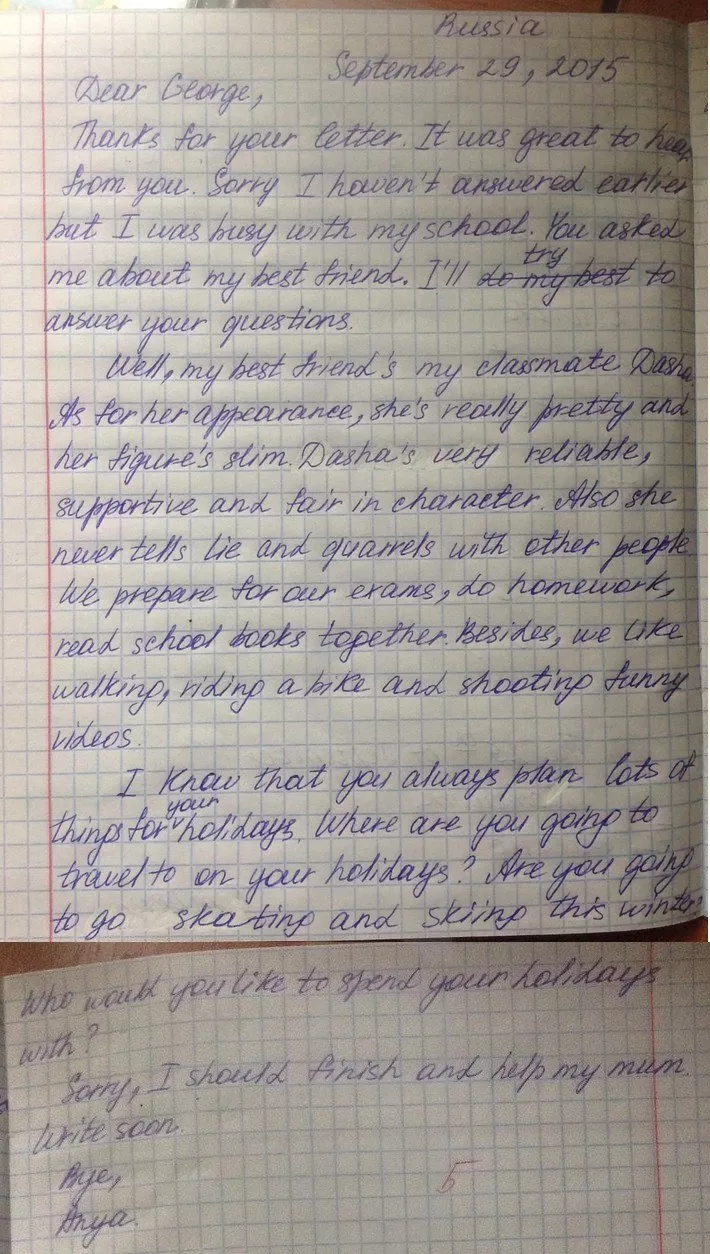 Russia
September 29, 2015
Dear George,
Thanks for your letter. It was great to hear
from you. Sorry I haven't answered earlier
but I was busy with my school. You asked
try
me about my best friend. I'll do my best to
answer your questions.
Well, my best friend's my classmate Dasha.
As for her appearance, she's really pretty and
her figure's slim. Dasha's very reliable,
supportive and fair in character. Also she
never tells lie and quarrels with other people.
We prepare for our exams, do homework,
read school books together. Besides, we like
walking, riding a bike and shooting funny
videos.
I know that you always plan lots of
your
things for holidays. Where are you going to
travel to on your holidays? Are you going
to go skating and skiing this winter?
Who would you like to spend your holidays
with?
Sorry, I should finish and help my mum.
Write soon.
Bye,
Anya.
5